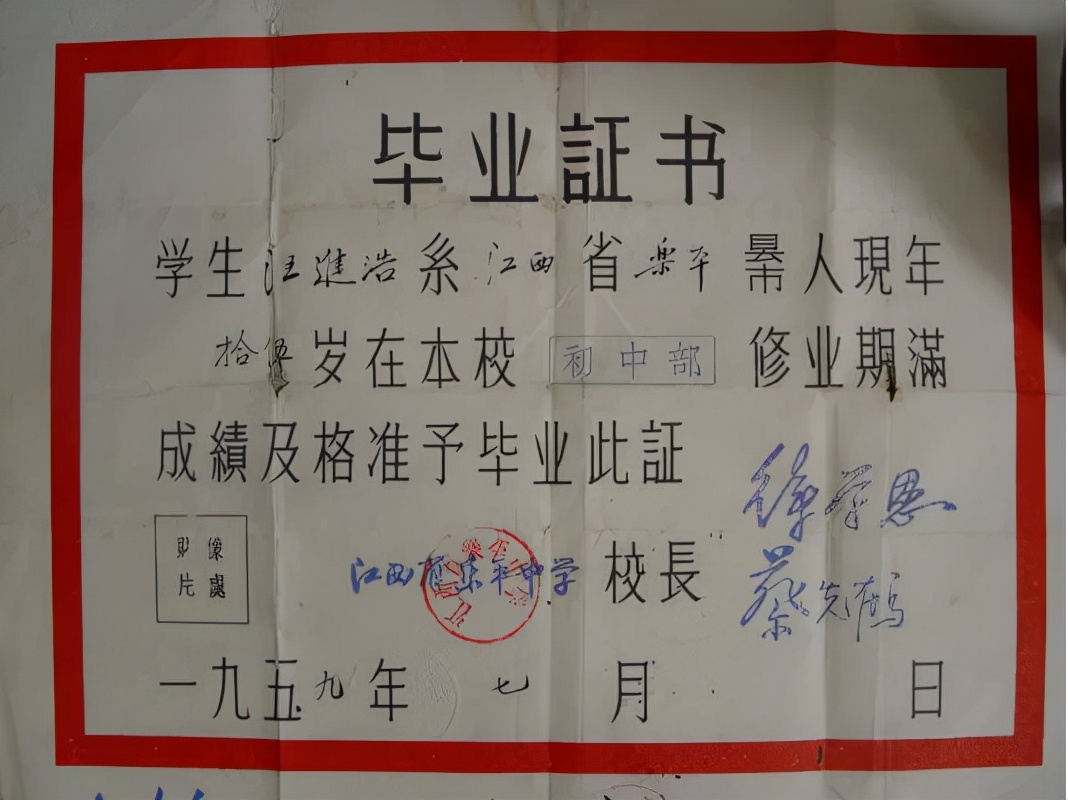 毕业証书
学生汪進浩系江西省樂平县市人現年
拾伍岁在本校初中部修业期滿
成績及格准予毕业此証
貼像
片處
江西省乐平中学校長
徐学恩
蔡先鶴
一九五九年七月日